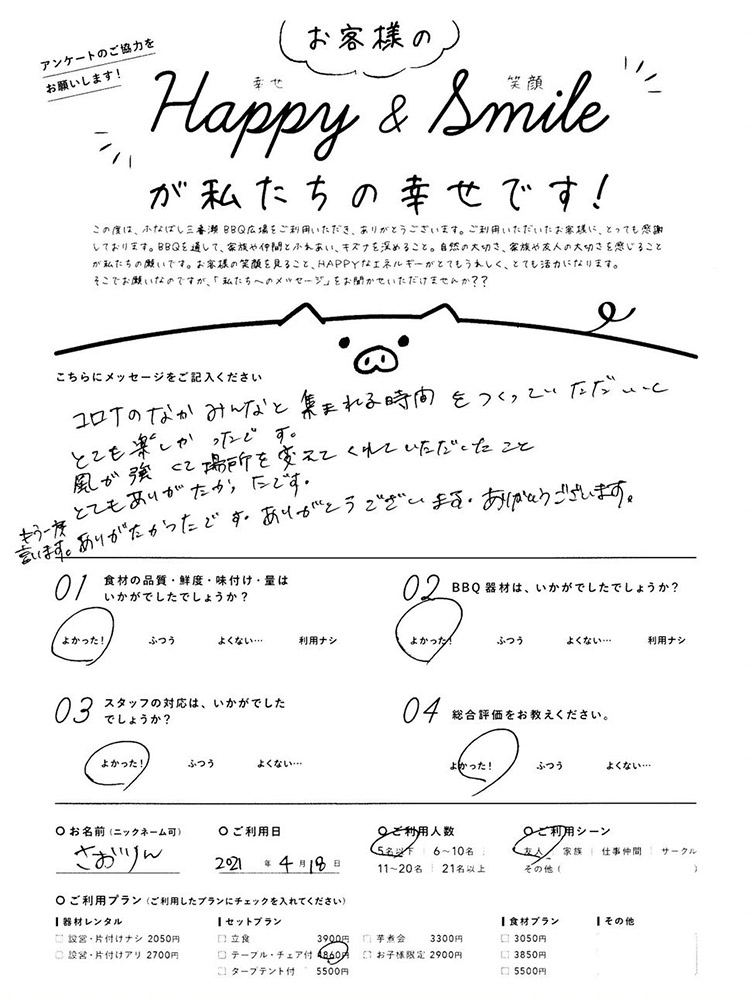 アンケートのご協力を
お願いします！
お客様の
幸せ 笑顔
Happy & Smile
が私たちの幸せです！
この度は、ふなばし三番瀬BBQ広場をご利用いただき、ありがとうございます。ご利用いただいたお客様に、とっても感謝
しております。BBQを通して、家族や仲間とふれあい、キズナを深めること。自然の大切さ、家族や友人の大切さを感じること
が私たちの願いです。お客様の笑顔を見ること、HAPPYなエネルギーがとてもうれしく、とても活力になります。
そこでお願いなのですが、「私たちへのメッセージ」をお聞かせいただけませんか？？
こちらにメッセージをご記入ください
コロナのなかみんなと集まれる時間をつくっていただいて
とても楽しかったです。
風が強くて場所を変えてくれていただいたこと
とてもありがたかったです。
もう一度
言います。ありがたかったです。ありがとうございます。ありがとうございます。
01 食材の品質・鮮度・味付け・量は
いかがでしたでしょうか？
よかった！ ふつう よくない… 利用ナシ
02 BBQ器材は、いかがでしたでしょうか？
よかった！ ふつう よくない… 利用ナシ
03 スタッフの対応は、いかがでした
でしょうか？
よかった！ ふつう よくない…
04 総合評価をお教えください。
よかった！ ふつう よくない…
お名前（ニックネーム可）
さおりん
ご利用日
2021 年 4 月 18 日
ご利用人数
5名以下 6~10名
11~20名 21名以上
ご利用シーン
友人 家族 仕事仲間 サークル
その他（ ）
ご利用プラン（ご利用したプランにチェックを入れてください）
器材レンタル
設営・片付けナシ 2050円
設営・片付けアリ 2700円
セットプラン
立食 3900円
テーブル・チェア付 4860円
タープテント付 5500円
芋煮会 3300円
お子様限定 2900円
食材プラン
3050円
3850円
5500円
その他